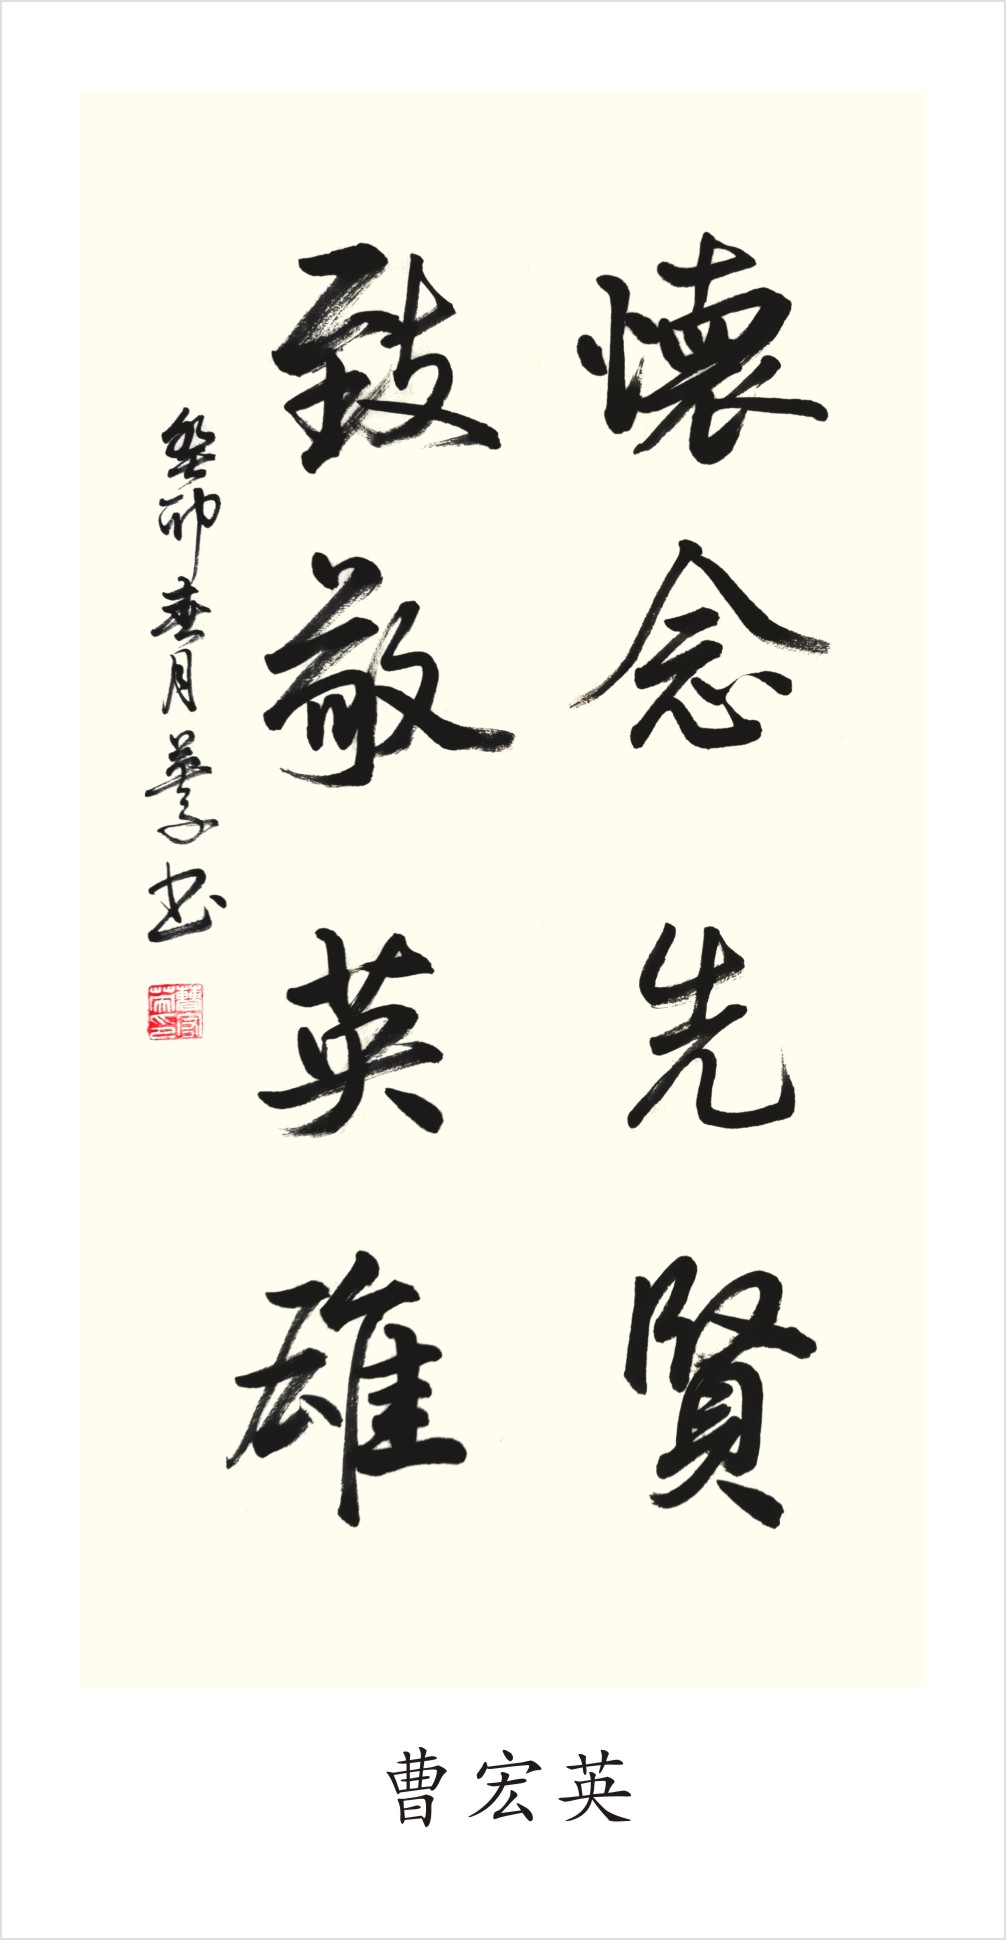 懷念先賢
致敬英雄
癸卯春月英子书
曹宏英印
曹宏英